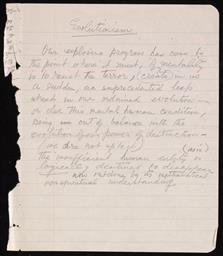 Evolutionism
Our explosive progress has come to
the point where it must, if mentality
is to the terror, (create) in us
a sudden, an unprecedented leap
ahead in our ordained evolution —
or else this mental human condition,
being now out of balance with the
evolution of our powers of destruction —
(we dare not apply)
the insufficient human entity is
logically destined to disappear
now
nonspiritual understanding